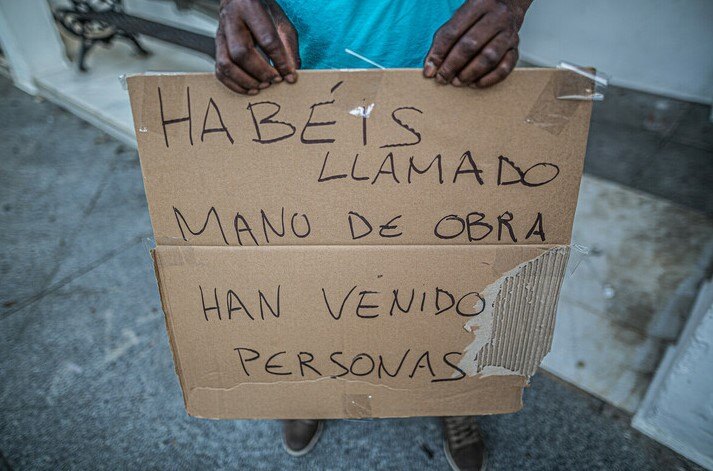 HABÉIS
LLAMADO
MANO DE OBRA
HAN VENIDO
PERSONAS